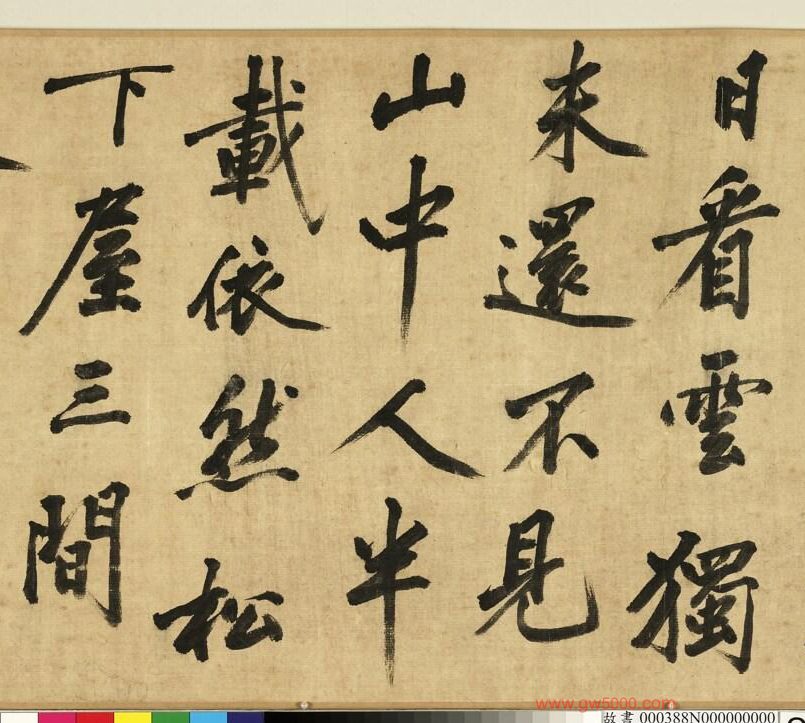 日看雲獨
来還不見
山中人半
載依然松
下屋三間
www.gw5000.com
故書 000388N000000000